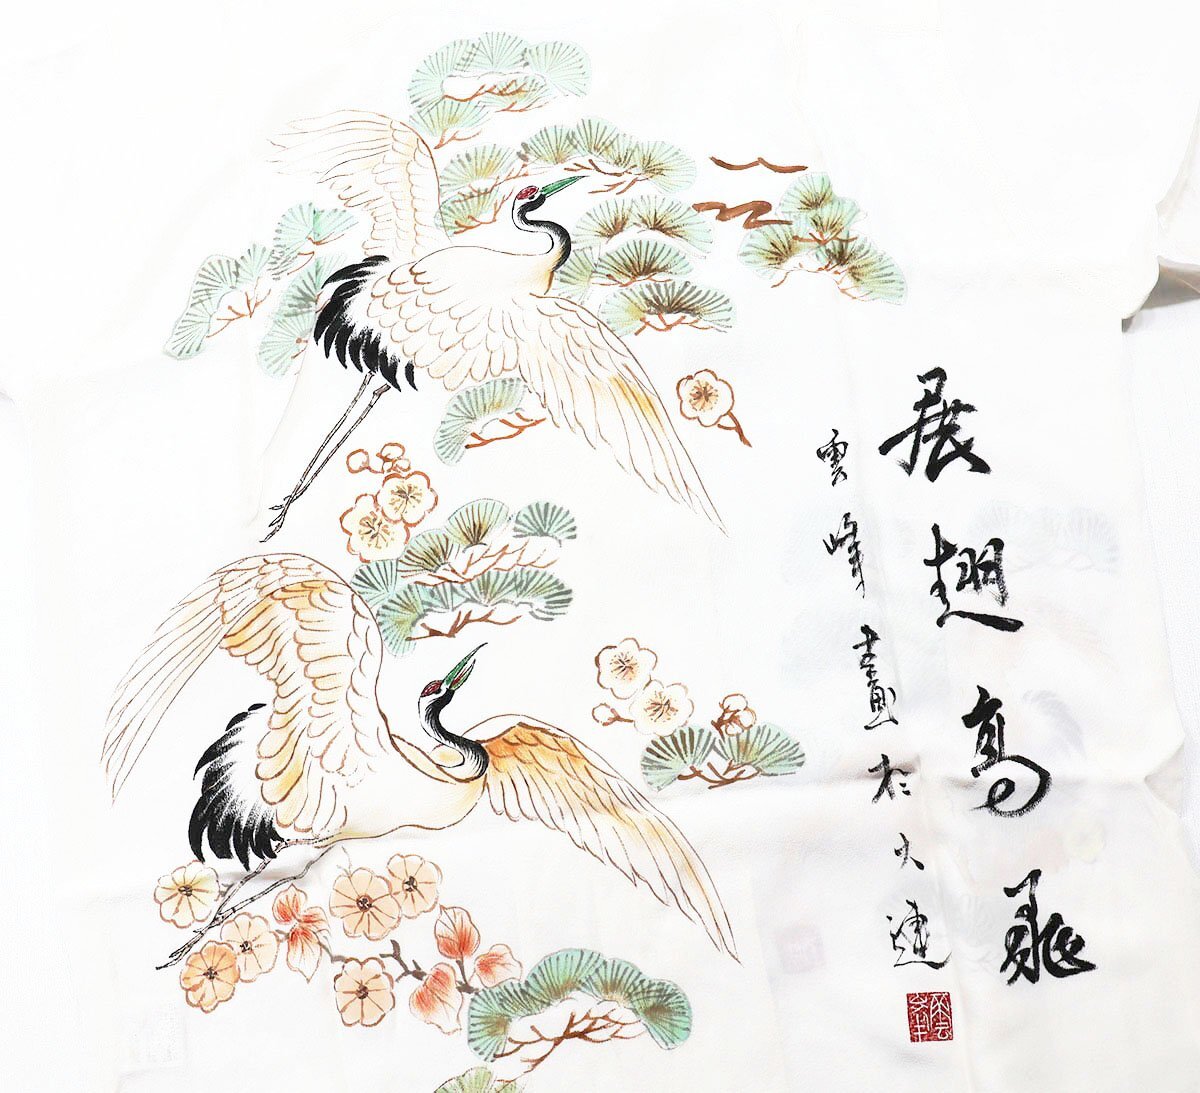 展翅高飛
雲峰畫於大連
雲峰